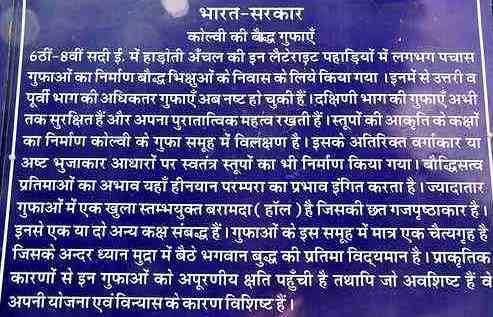 भारत-सरकार
कोल्वी की बौद्ध गुफाएँ
6ठीं-8वीं सदी ई. में हाड़ोती अँचल की इन लैटेराइट पहाड़ियों में लगभग पचास
गुफाओं का निर्माण बौद्ध भिक्षुओं के निवास के लिये किया गया । इनमें से उत्तरी व
पूर्वी भाग की अधिकतर गुफाएँ अब नष्ट हो चुकी हैं । दक्षिणी भाग की गुफाएँ अभी
तक सुरक्षित हैं और अपना पुरातात्विक महत्व रखती हैं । स्तूपों की आकृति के कक्षों
का निर्माण कोल्वी के गुफा समूह में विलक्षण है । इसके अतिरिक्त वर्गाकार या
अष्ट भुजाकार आधारों पर स्वतंत्र स्तूपों का भी निर्माण किया गया । बौद्धिसत्व
प्रतिमाओं का अभाव यहाँ हीनयान परम्परा का प्रभाव इंगित करता है । ज्यादातार
गुफाओं में एक खुला स्तम्भयुक्त बरामदा ( हॉल ) है जिसकी छत गजपृष्ठाकार है ।
इनसे एक या दो अन्य कक्ष संबद्ध हैं । गुफाओं के इस समूह में मात्र एक चैत्यगृह है
जिसके अन्दर ध्यान मुद्रा में बैठे भगवान बुद्ध की प्रतिमा विद्यमान है । प्राकृतिक
कारणों से इन गुफाओं को अपूरणीय क्षति पहुँची है तथापि जो अवशिष्ट हैं वे
अपनी योजना एवं विन्यास के कारण विशिष्ट हैं ।